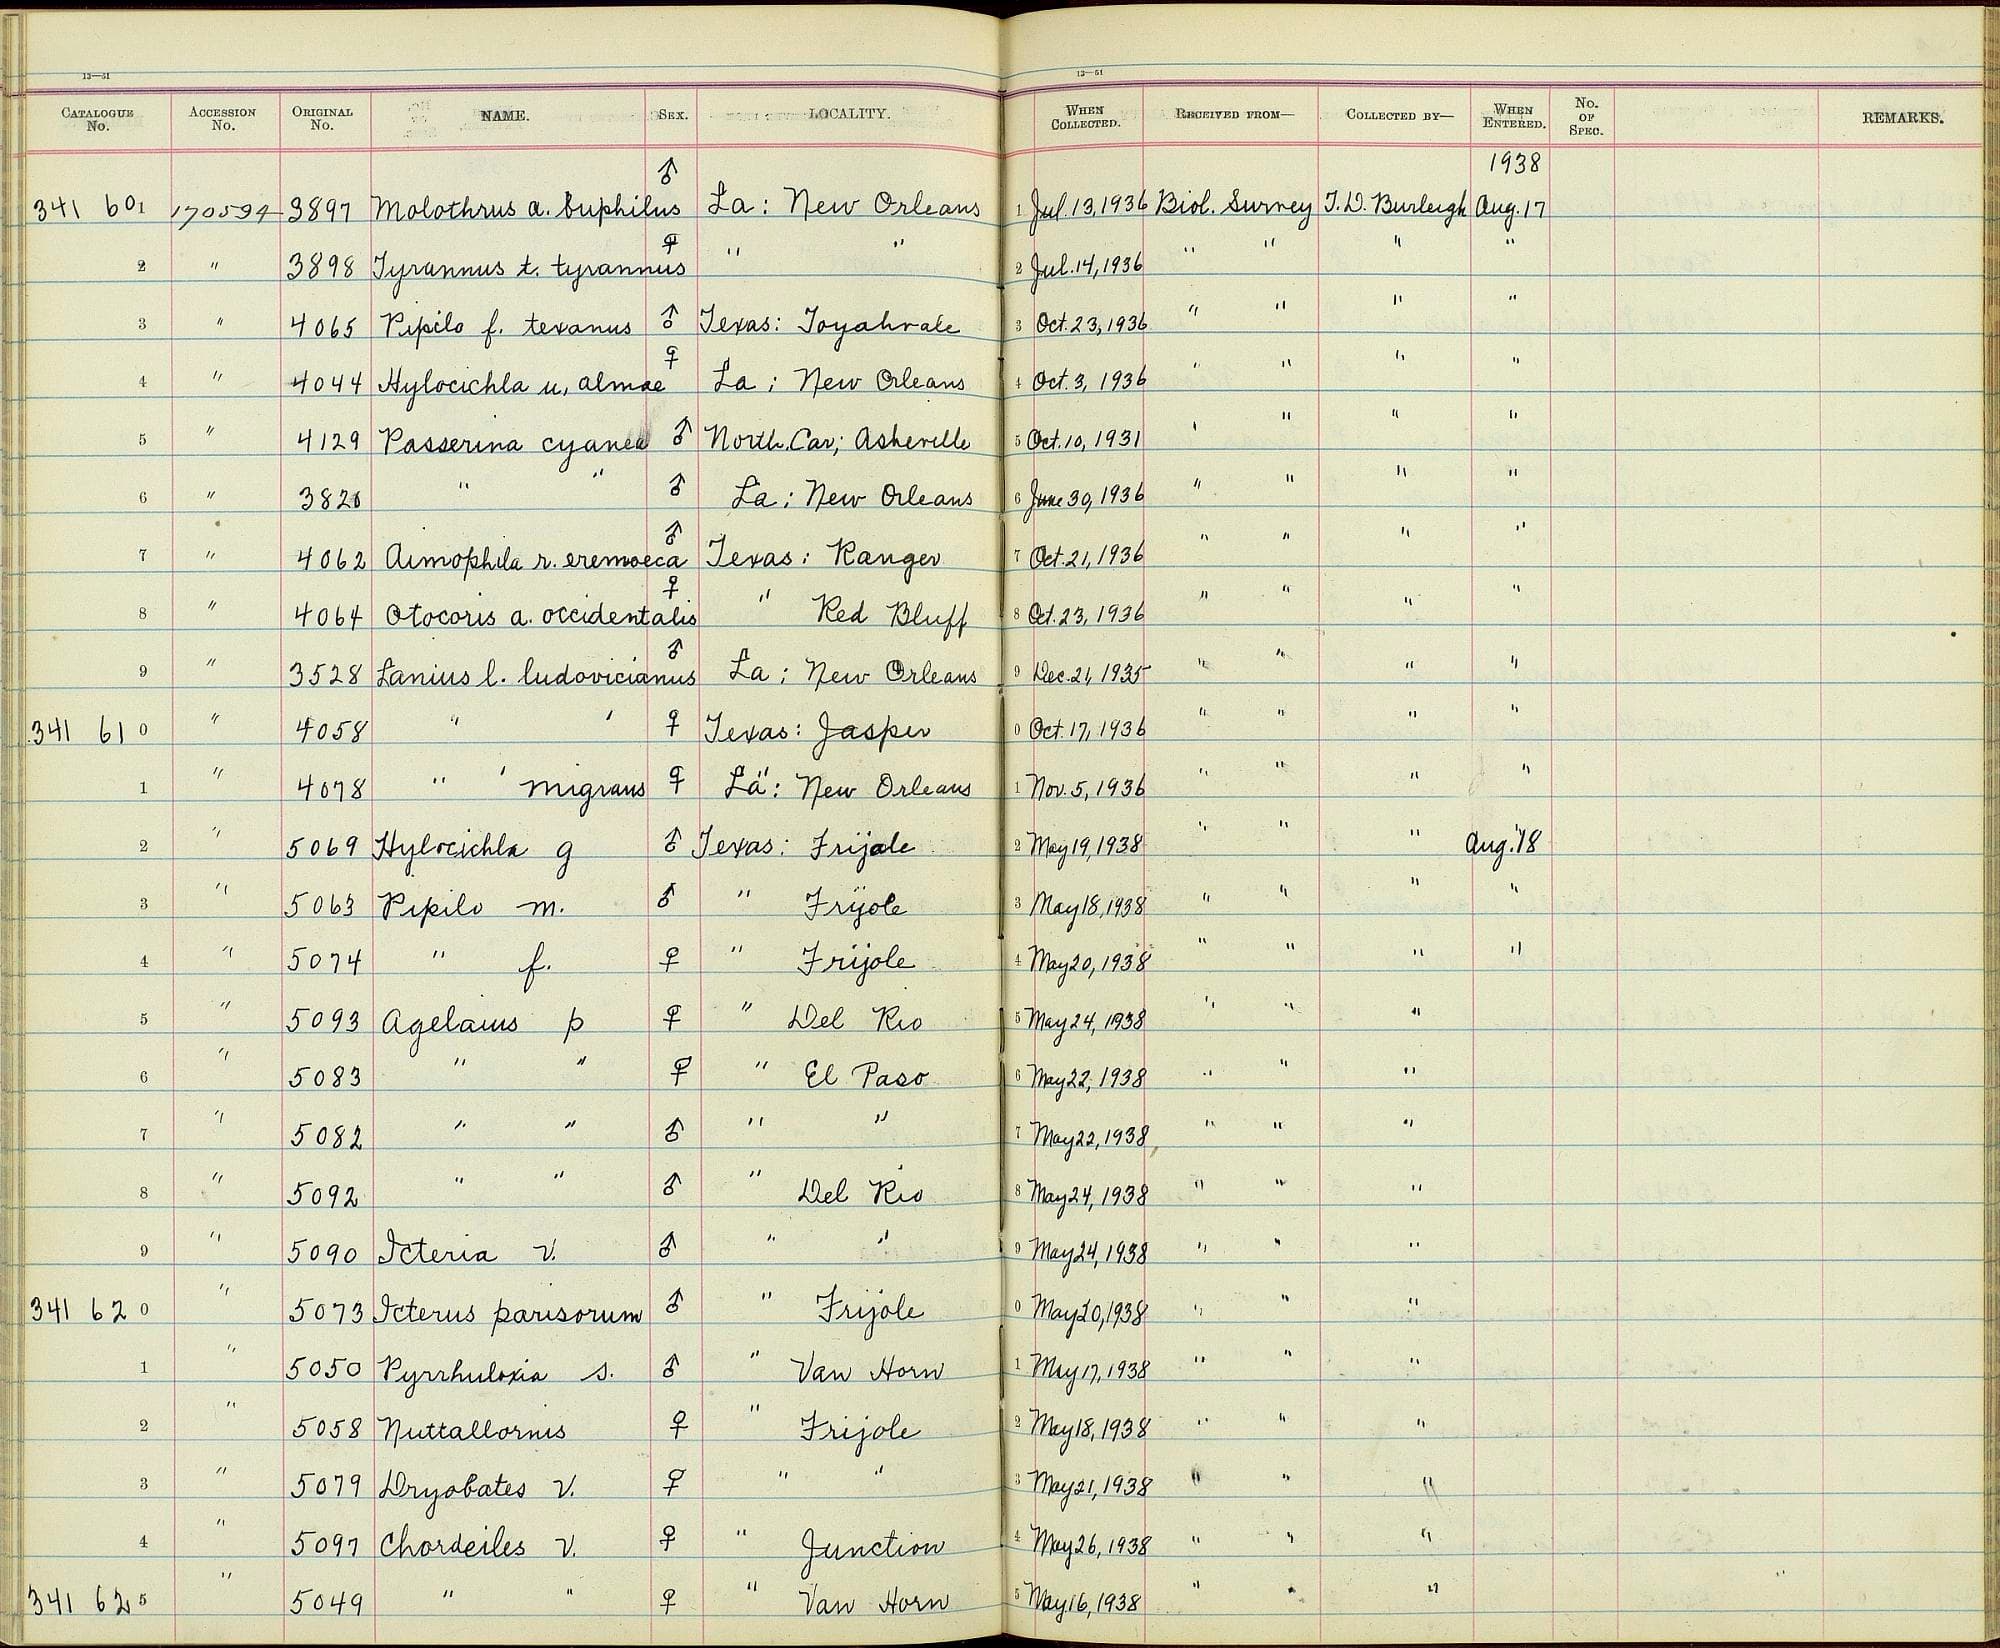 13—51 13—51
CATALOGUE No. ACCESSION No. ORIGINAL No. NAME. SEX. LOCALITY. WHEN COLLECTED. RECEIVED FROM— COLLECTED BY— WHEN ENTERED. No. OF SPEC. REMARKS.
1938
341 601 170594 3897 Molothrus a. buphilus ♂ La: New Orleans 1 Jul. 13, 1936 Biol. Survey T. D. Burleigh Aug. 17
2 " 3898 Tyrannus t. tyrannus ♀ " " 2 Jul. 14, 1936 " " " "
3 " 4065 Pipilo f. texanus ♂ Texas: Toyahvale 3 Oct. 23, 1936 " " " "
4 " 4044 Hylocichla u. almae ♀ La: New Orleans 4 Oct. 3, 1936 " " " "
5 " 4129 Passerina cyanea ♂ North. Car; Asheville 5 Oct. 10, 1931 " " " "
6 " 3820 " " ♂ La: New Orleans 6 June 30, 1936 " " " "
7 " 4062 Aimophila r. eremoeca ♂ Texas: Ranger 7 Oct. 21, 1936 " " " "
8 " 4064 Otocoris a. occidentalis ♀ " Red Bluff 8 Oct. 23, 1936 " " " "
9 " 3528 Lanius l. ludovicianus ♂ La: New Orleans 9 Dec. 21, 1935 " " " "
341 610 " 4058 " ' ♀ Texas: Jasper 0 Oct. 17, 1936 " " " "
1 " 4078 " ' migrans ♀ La: New Orleans 1 Nov. 5, 1936 " " " "
2 " 5069 Hylocichla g ♂ Texas: Frijole 2 May 19, 1938 " " " Aug. 18
3 " 5063 Pipilo m. ♂ " Frijole 3 May 18, 1938 " " " "
4 " 5074 " f. ♀ " Frijole 4 May 20, 1938 " " " "
5 " 5093 Agelaius p ♀ " Del Rio 5 May 24, 1938 " " "
6 " 5083 " " ♀ " El Paso 6 May 22, 1938 " " "
7 " 5082 " " ♂ " " 7 May 22, 1938 " " "
8 " 5092 " " ♂ " Del Rio 8 May 24, 1938 " " "
9 " 5090 Icteria v. ♂ " " 9 May 24, 1938 " " "
341 620 " 5073 Icterus parisorum ♂ " Frijole 0 May 20, 1938 " " "
1 " 5050 Pyrrhuloxia s. ♂ " Van Horn 1 May 17, 1938 " " "
2 " 5058 Nuttallornis ♀ " Frijole 2 May 18, 1938 " " "
3 " 5079 Dryobates v. ♀ " " 3 May 21, 1938 " " "
4 " 5097 Chordeiles v. ♀ " Junction 4 May 26, 1938 " " "
341 625 " 5049 " " ♀ " Van Horn 5 May 16, 1938 " " "